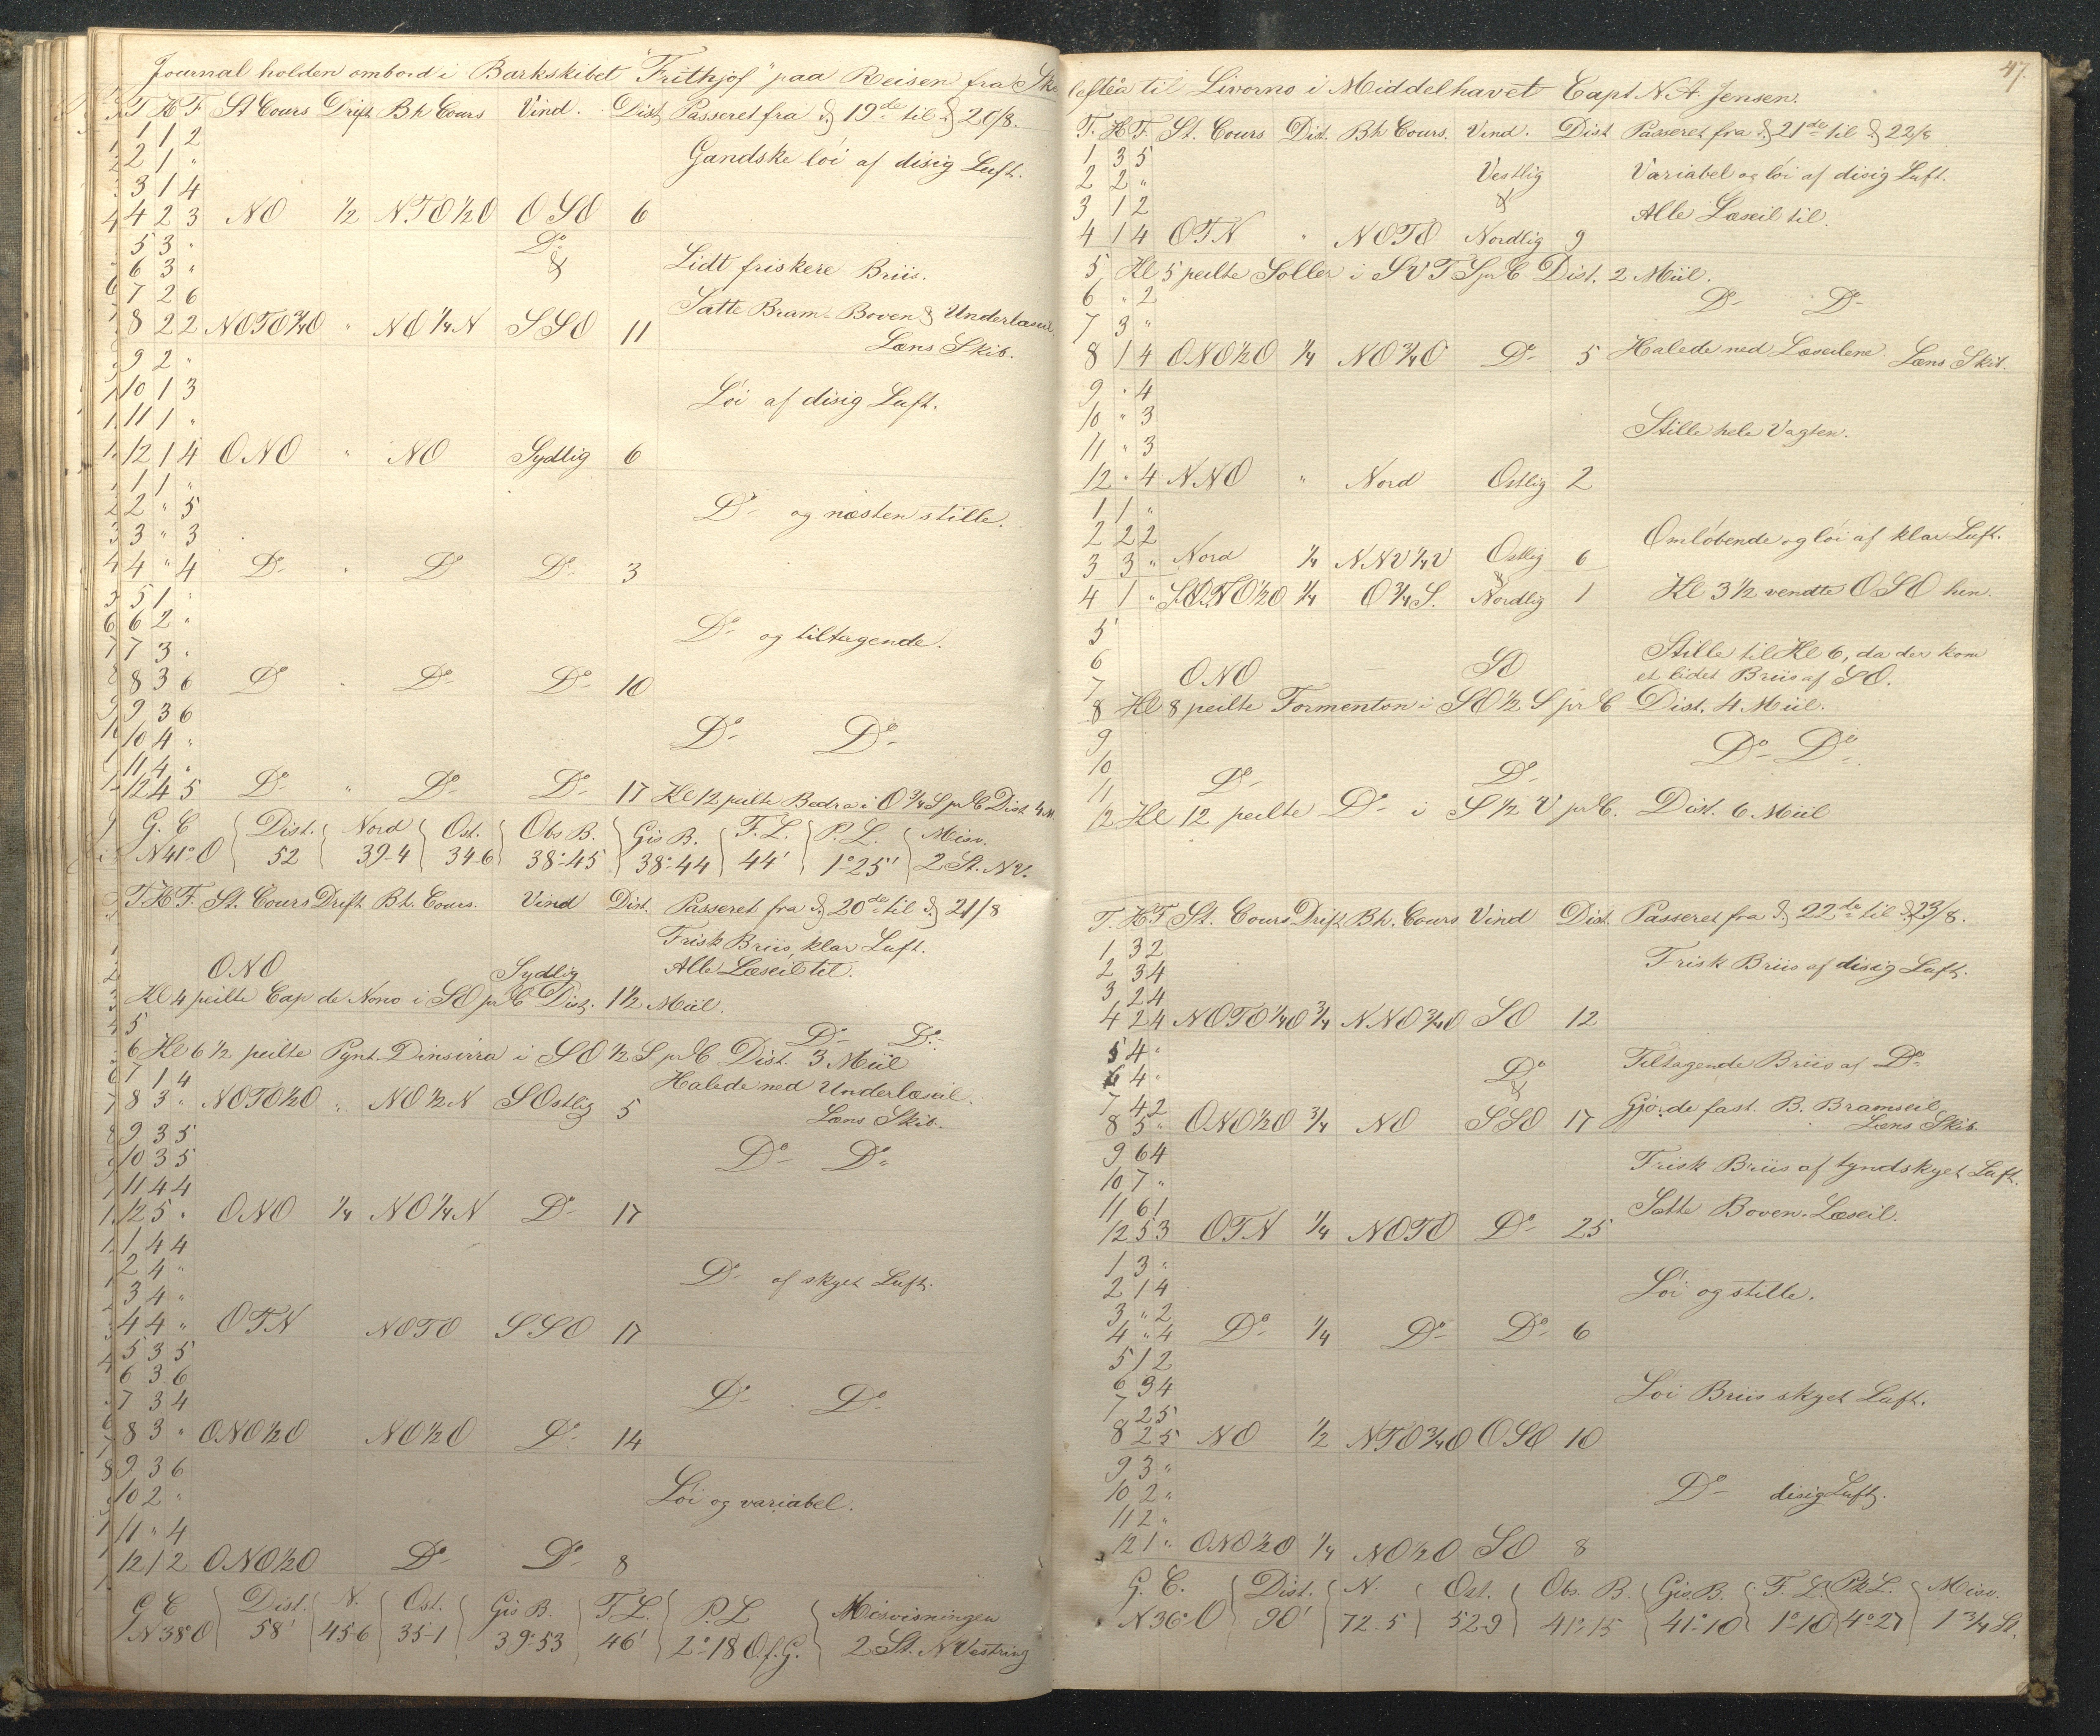 Journal holden ombord i Barkskibet "Frithjof" paa Reisen fra Ske
T H F St Cours Drift Bh Cours Vind. Dist Passeret fra d 19de til d 20/8.
1 1 2
2 1 "
Gandske løi af disig Luft.
3 1 4
4 2 3 NO 1/2 NTO1/2O OSO 6
5 3 "
Do
6 3 "
&
Lidt friskere Briis.
7 2 6
Satte Bram- Boven & Underlæseil.
8 2 2 NOTO3/4O " NO1/4N SSO 11
Læns Skib.
9 2 "
10 1 3
Løi af disig Luft.
11 1 "
12 1 4 ONO " NO Sydlig 6
1 1 "
2 " 5
Do og næsten stille.
3 " 3
4 " 4 Do " Do Do 3
5 1 "
6 2 "
Do og tiltagende.
7 3 "
8 3 6 Do " Do Do 10
9 3 6
10 4 "
Do Do
11 4 "
12 4 5 Do " Do Do 17 Kl 12 peilte Bedra i O3/4S pr C Dist 4 M.
G. C Dist. Nord Ost. Obs B. Gis B. F. L. P. L. Misv.
N41°O 52 39-4 34-6 38°-45 38°-44 44' 1°25' 2 St. NV.
T H F St. Cours Drift Bh. Cours. Vind Dist. Passeret fra d 20de til d 21/8
Frisk Briis, klar Luft.
ONO Sydlig Alle Læseil til.
Kl 4 peilte Cap de Nono i SO pr C Dist. 1 1/2 Miil.
5
Do Do
6 Kl 6 1/2 peilte Pynt. Dinsirra i SO1/2S pr C Dist. 3 Miil
7 1 4
Halede ned Underlæseil.
8 3 " NOTO1/2O " NO1/2N SOstlig 5
Læns Skib.
9 3 5
10 3 5
Do Do
11 4 4
12 5 " ONO 1/4 NO1/4N Do 17
1 4 4
2 4 "
Do af skyet Luft.
3 4 "
4 4 " OTN NOTO SSO 17
5 3 5
6 3 6
Do Do
7 3 4
8 3 " ONO1/2O NO1/2O Do 14
9 3 6
10 2 "
Løi og variabel.
11 " 4
12 1 2 ONO1/2O Do Do 8
G C Dist. N. Ost. Gis B. F L. P. L Misvisningen
N38°O 58' 45-6 35-1 39°-53 46' 2°-18 O.f.G. 2 St. NVestring
47.
lefteå til Livorno i Middelhavet Capt N. A. Jensen.
T. H F. St. Cours Dist. Bh Cours. Vind. Dist Passeret fra d 21de til d 22/8
1 3 5
2 2 "
Vestlig Variabel og løi af disig Luft.
3 1 2
& Alle Læseil til.
4 1 4 OTN " NOTO Nordlig 9
5 Kl 5 peilte Soller i SVTS pr C Dist. 2 Miil.
6 " 2
Do Do
7 3 "
8 1 4 ONO1/2O 1/4 NO3/4O Do 5 Halede ned Læseilene Læns Skib.
9 " 4
10 " 3
Stille hele Vagten.
11 " 3
12 " 4 NNO " Nord Ostlig 2
1 1 "
2 2 2
Omløbende og løi af klar Luft.
3 3 " Nord 1/4 NNV1/4V Ostlig 6
&
4 1 " 1/4 O3/4S. Nordlig 1 Kl 3 1/2 vendte OSO hen.
5
6
Stille til Kl 6, da der kom
ONO SO et lidet Briis af SO.
7
8 Kl 8 peilte Formenton i SO1/2S pr C Dist. 4 Miil.
9
Do Do
10
Do Do
11
12 Kl 12 peilte Do i S1/2V pr C. Dist. 6 Miil
T. H F St. Cours Drift Bh. Cours Vind Dist. Passeret fra d 22de til d 23/8.
1 3 2
2 3 4
Frisk Briis af disig Luft.
3 2 4
4 2 4 NOTO1/4O 3/4 NNO3/4O SO 12
5 4 "
Do Tiltagende Briis af Do
6 4 "
&
7 4 2
Gjorde fast B. Bramseil
8 5 " ONO1/2O 3/4 NO SSO 17
Læns Skib.
9 6 4
Frisk Briis af tyndskyet Luft.
10 7 "
11 6 1
Satte Boven-Læseil.
12 5 3 OTN 1/4 NOTO Do 25
1 3 "
2 1 4
Løi og stille.
3 " 2
4 " 4 Do 1/4 Do Do 6
5 1 2
6 3 4
Løi Briis skyet Luft.
7 2 5
8 2 5 NO 1/2 NTO3/4O OSO 10
9 3 "
10 2 "
Do disig Luft.
11 2 "
12 1 " ONO1/2O 1/4 NO1/2O SO 8
G. C. Dist. N. Ost. Obs. B. Gis. B. F. L. Pl L. Misv.
N36°O 90' 72-5 52-9 41°-15 41°-10 1°-10 4°-27 1 3/4 St.